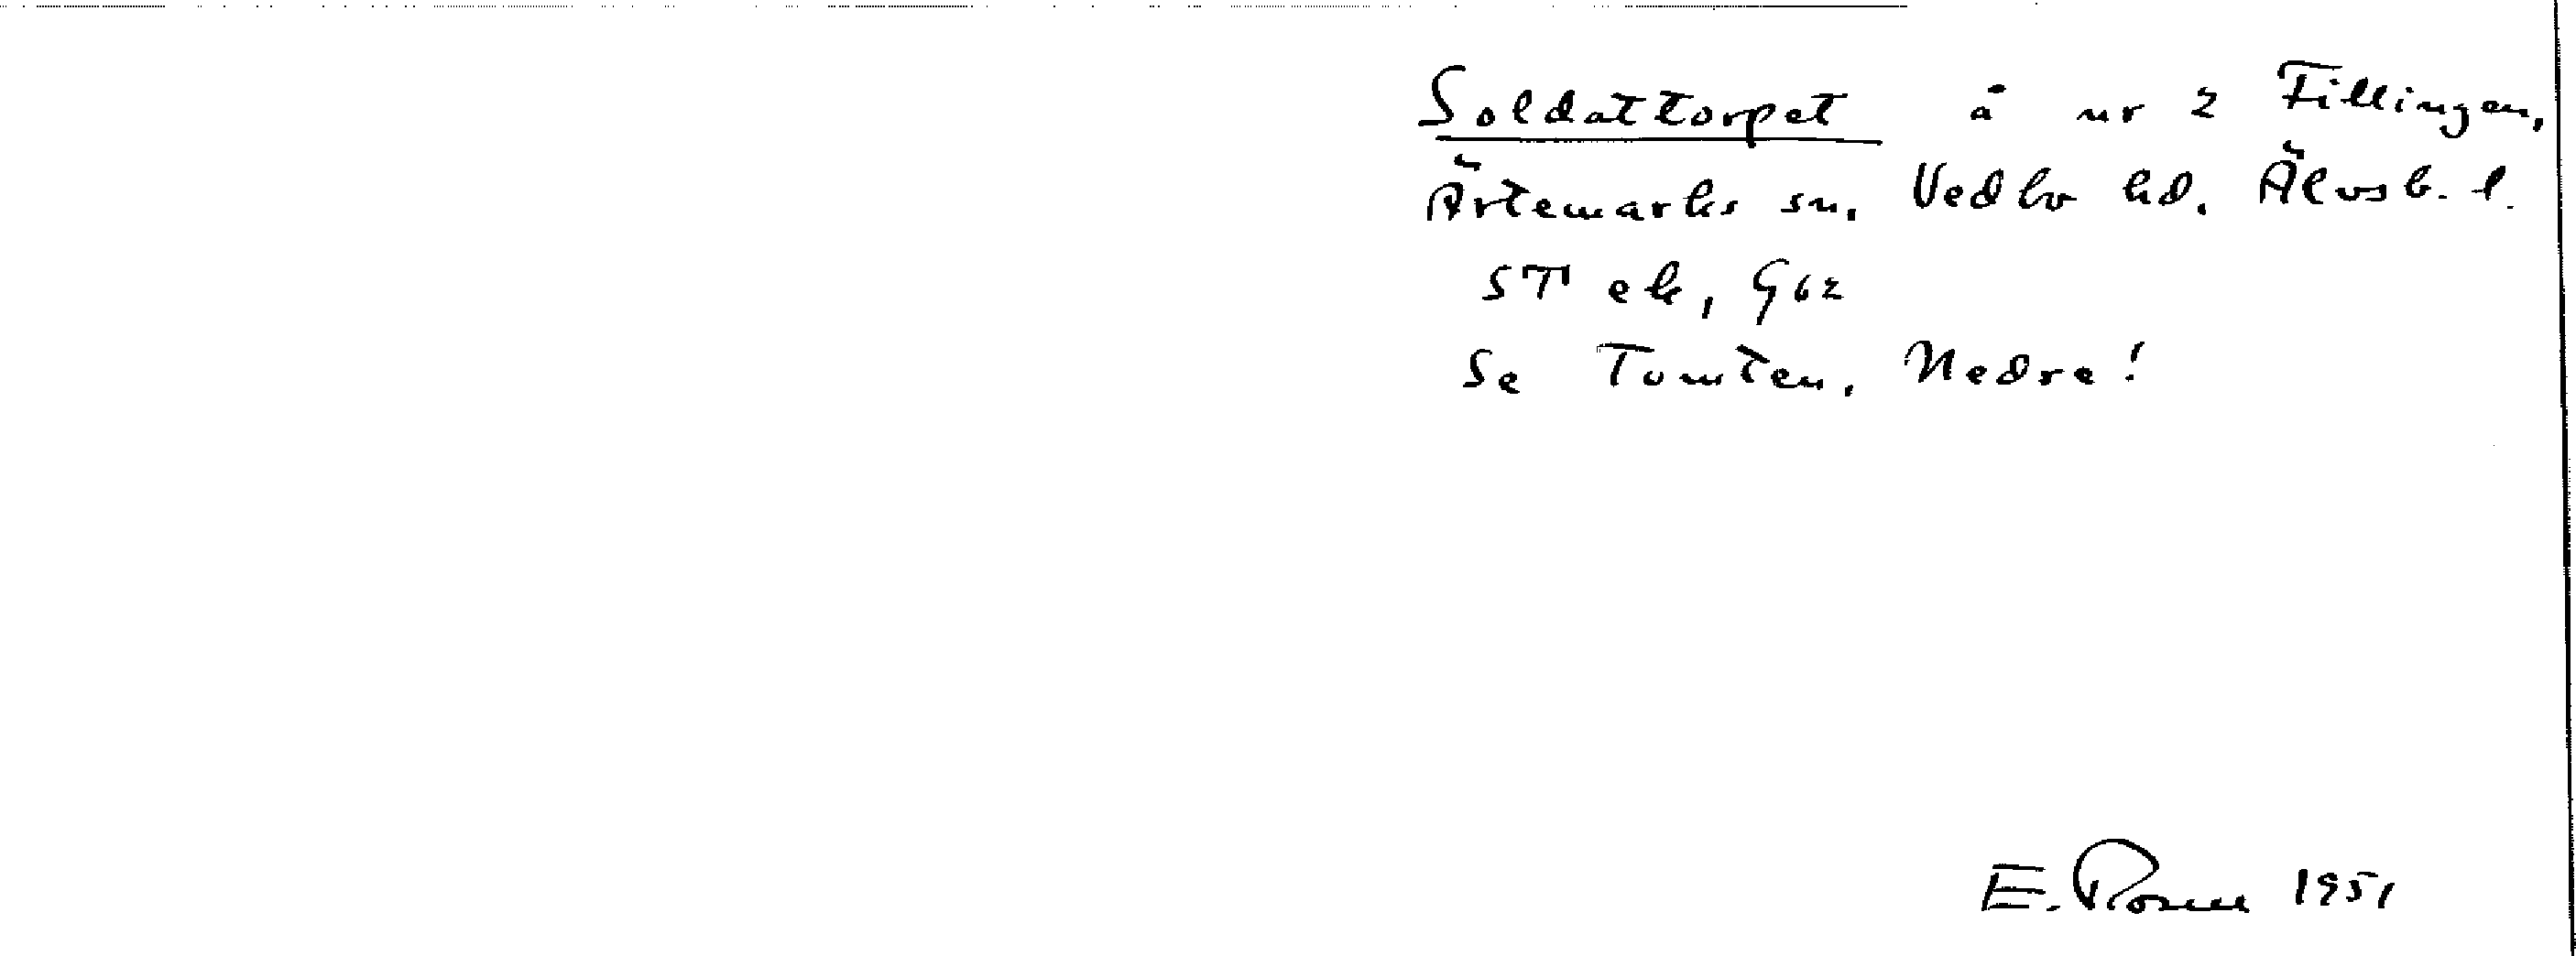 Soldattorpet å nr 2 Fillingen,
Ärtemarks sn. Vedbo hd. Älvsb. l.
ST ek, G62
Se Tomten, Nedre!
E. Rosell 1951